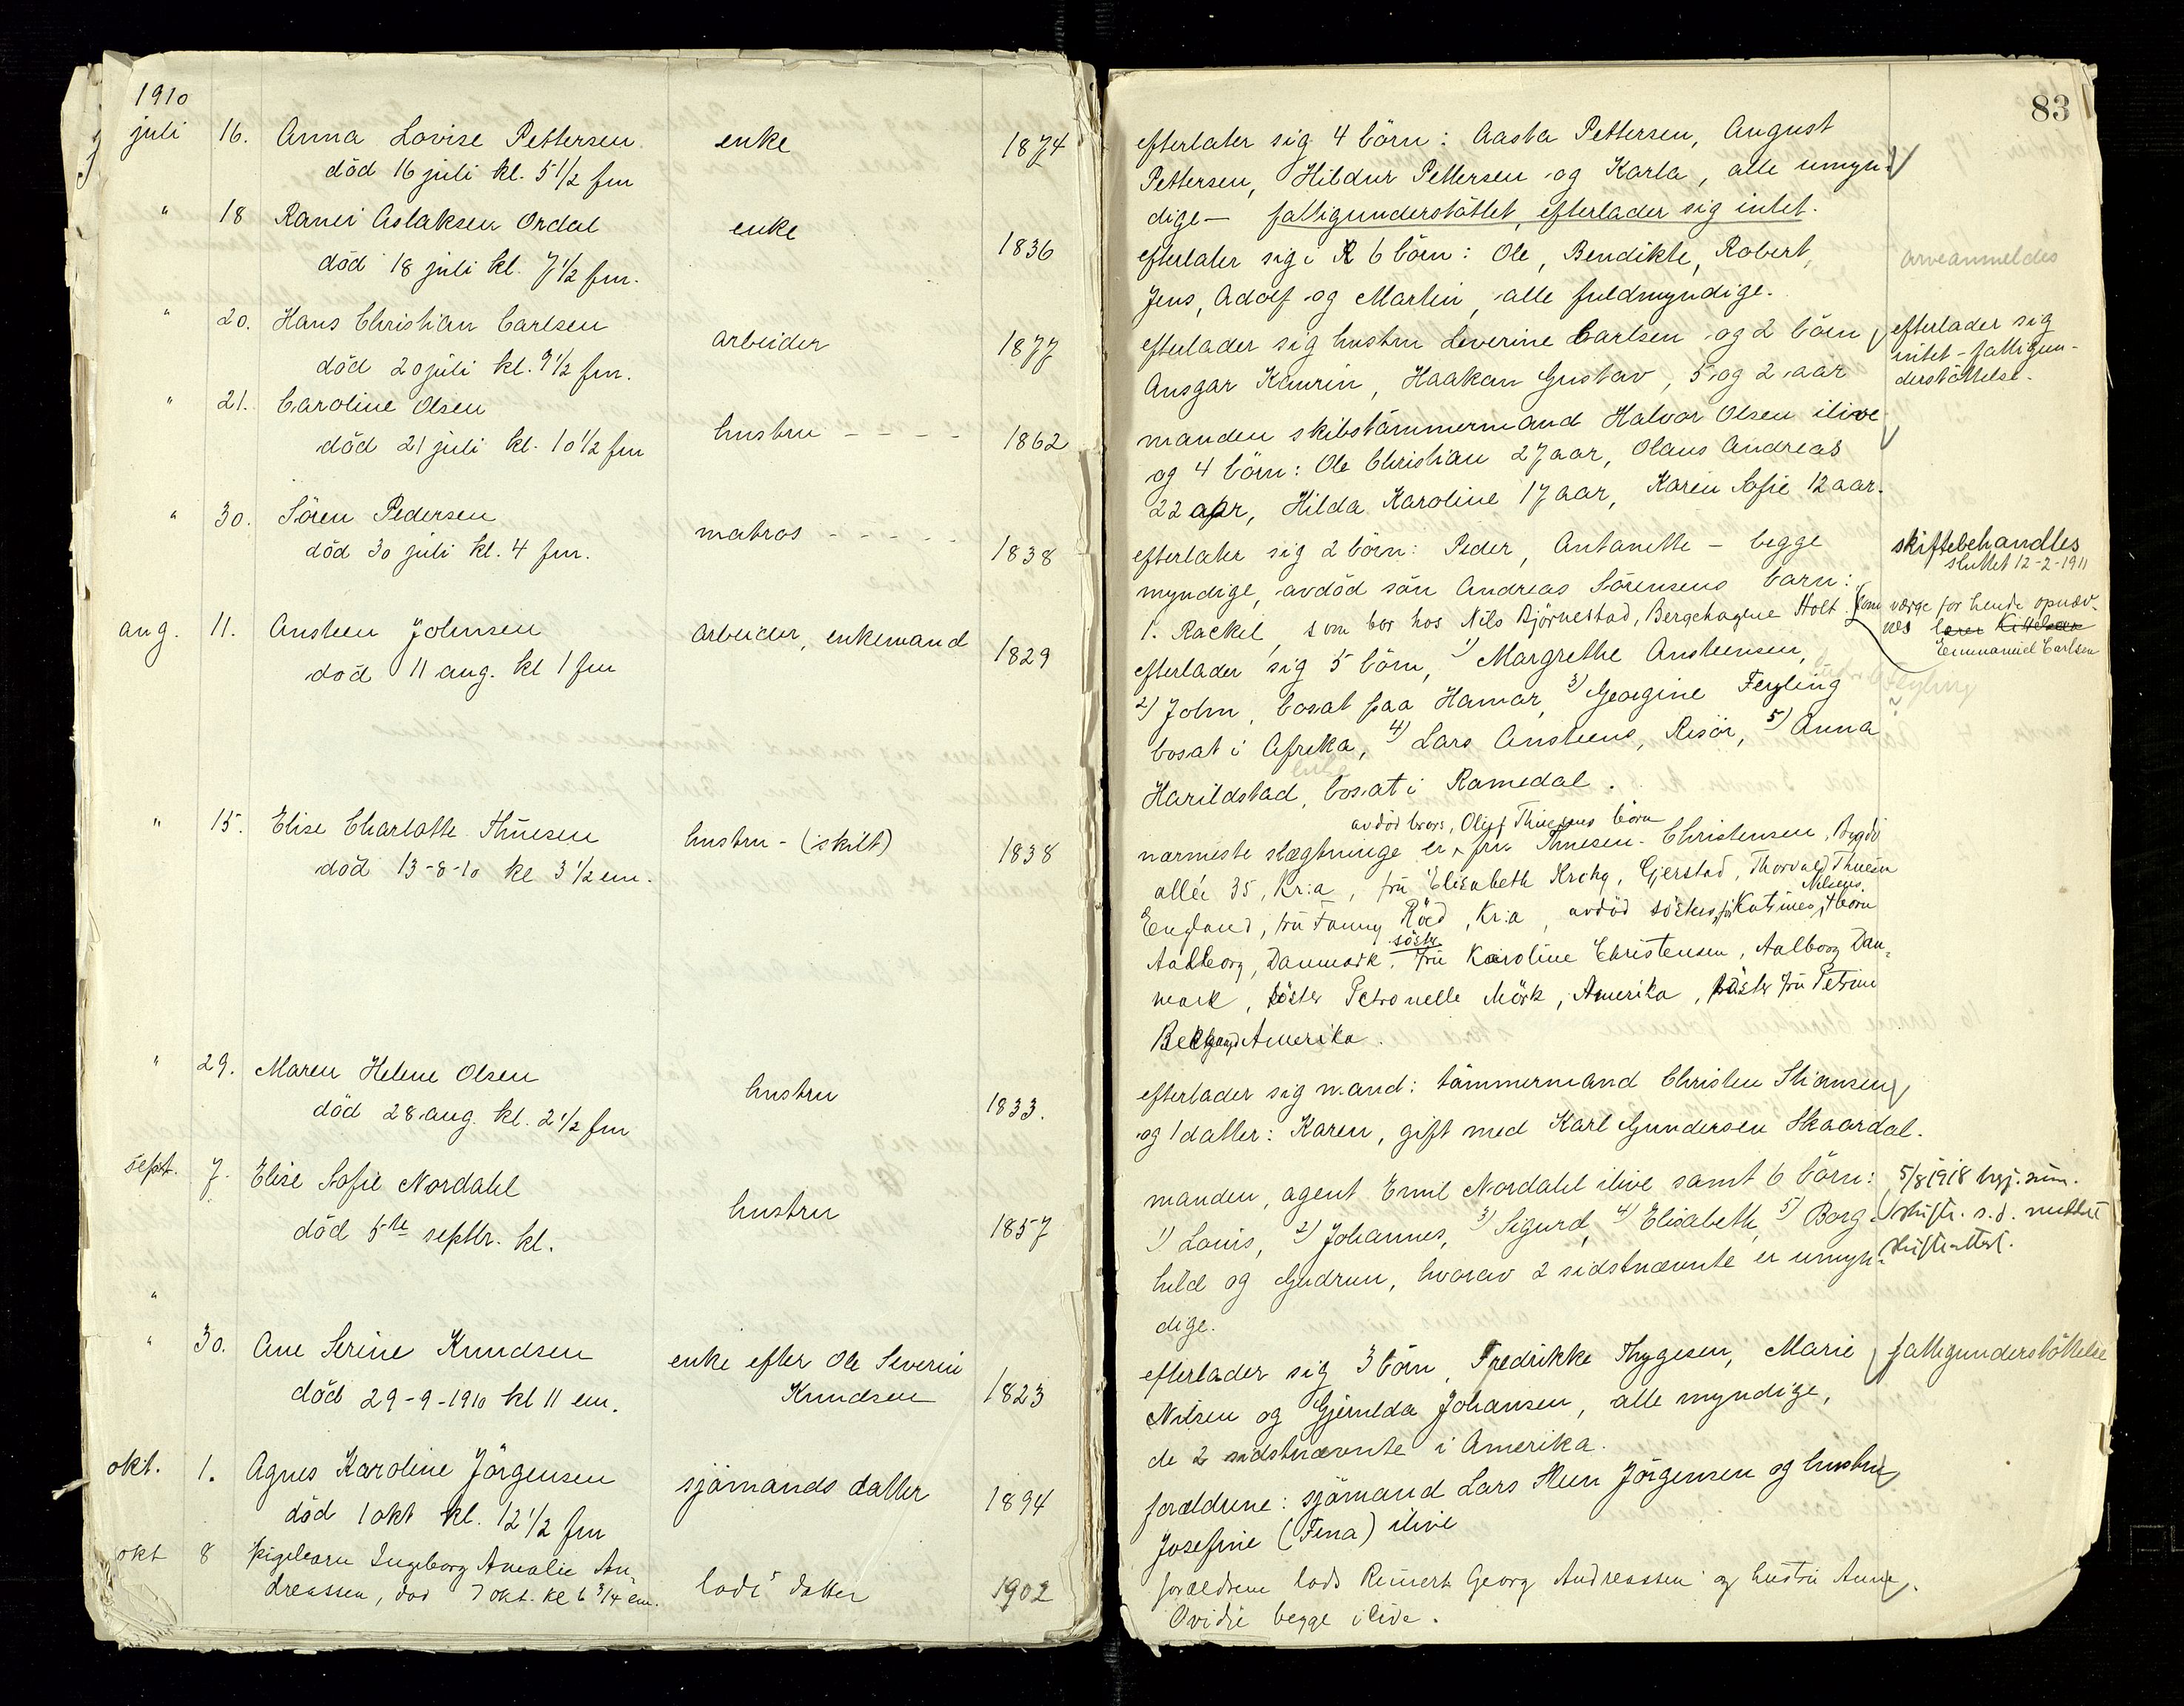 1910
juli 16. Anna Lovise Pettersen enke 1874
död 16 juli kl. 5 1/2 fm
" 18 Ranei Aslaksen Ordal enke 1836
död 18 juli kl. 7 1/2 fm.
" 20. Hans Christian Carlsen arbeider 1877
död 20 juli kl. 9 1/2 fm.
" 21. Caroline Olsen hustru - - - - 1862
död 21 juli kl. 10 1/2 fm
" 30. Sören Pedersen matros - - - - - 1838
död 30 juli kl. 4 fm.
aug. 11. Ansteen Johnsen arbeider, enkemand 1829
död 11 aug. kl 1 fm
" 15. Elise Charlotte Thuesen hustru - (skilt) 1838
död 13-8-10 kl 3 1/2 em.
" 29. Maren Helene Olsen hustru 1833.
död 28 aug. kl. 2 1/2 fm
sept. 7. Elise Sofie Nordahl hustru 1857
död 5te septbr. kl.
"
" 30. Ane Serine Knudsen enke efter Ole Severin
Knudsen 1823
död 29-9-1910 kl 11 em.
okt. 1. Agnes Karoline Jörgensen sjömands datter 1894
död 1 okt kl. 12 1/2 fm
okt 8 pigebarn Ingeborg Amalie An-
dreassen, död 7 okt. kl 6 3/4 em. lods datter 1902
83
efterlater sig 4 börn: Aasta Pettersen, August
Pettersen, Hildur Pettersen og Karla, alle umyn-
dige - fattigunderstöttet, efterlader sig intet.
efterlater sig i 6 börn: Ole, Bendikte, Robert,
arveanmeldes
Jens, Adolf og Martin, alle fuldmyndige.
efterlader sig hustru Severine Carlsen og 2 börn
Ansgar Kaurin, Haakon Gustav, 5 og 2 aar
efterlader sig
intet - fattigun-
derstöttelse.
manden skibstömmermand Halvor Olsen ilive
og 4 börn: Ole Christian 27 aar, Olaus Andreas
22 aar, Hilda Karoline 17 aar, Karen Sofie 12 aar.
efterlater sig 2 börn: Peder, Antonette - begge
myndige, avdöd sön Andreas Sörensens barn:
1. Rackel, som bor hos Nils Björnestad, Bergehagene Holt.
skiftebehandles
sluttet 12-2-1911
som værge for hende opnæv-
nes lærer Kittelsen
Emmanuel Carlsen
efterlader sig 5 börn, 1) Margrethe Ansteensen,
2) John, bosat paa Hamar, 3) Georgine Feyling
Feyling
bosat i Afrika, 4) Lars Ansteens, Risör, 5) Anna
Harildstad, bosat i Romedal.
avdöd brors, Oluf Thuesens börn
nærmeste slægtninge er fru Thuesen-Christensen, Bygdö
allé 35, Kr:a, fru Elisabeth Krohg, Gjerstad, Thorvald Thuesen
England, fru Fanny Röed, Kr:a, avdöd sösters, fru Katrines Nilsens börn
Aalborg, Danmark. söster fru Karoline Christensen, Aalborg Dan-
mark, söster Petronelle Mörk, Amerika, söster fru Petrine
Amerika.
efterlader sig mand: tömmermand Christen Stiansen
og 1 datter: Karen, gift med Karl Gundersen Skaardal.
manden, agent Emil Nordahl ilive samt 6 börn:
1) Louis, 2) Johannes, 3) Sigurd, 4) Elisabeth, 5) Borg-
hild og Gudrun, hvorav 2 sidstnævnte er umyn-
dige.
5/8 1918 begj. sum.
skifte. s.d. meddelt
skifteattest.
efterlader sig 3 börn, Fredrikke Thygesen, Marie
fattigunderstöttelse
Nilsen og Gjerulda Johansen, alle myndige,
de 2 sidstnævnte i Amerika.
forældrene: sjömand Lars Steen Jörgensen og hustru
Josefine (Fina) ilive
forældrene lods Reinert Georg Andreassen og hustru Anne
Ovidie begge ilive.